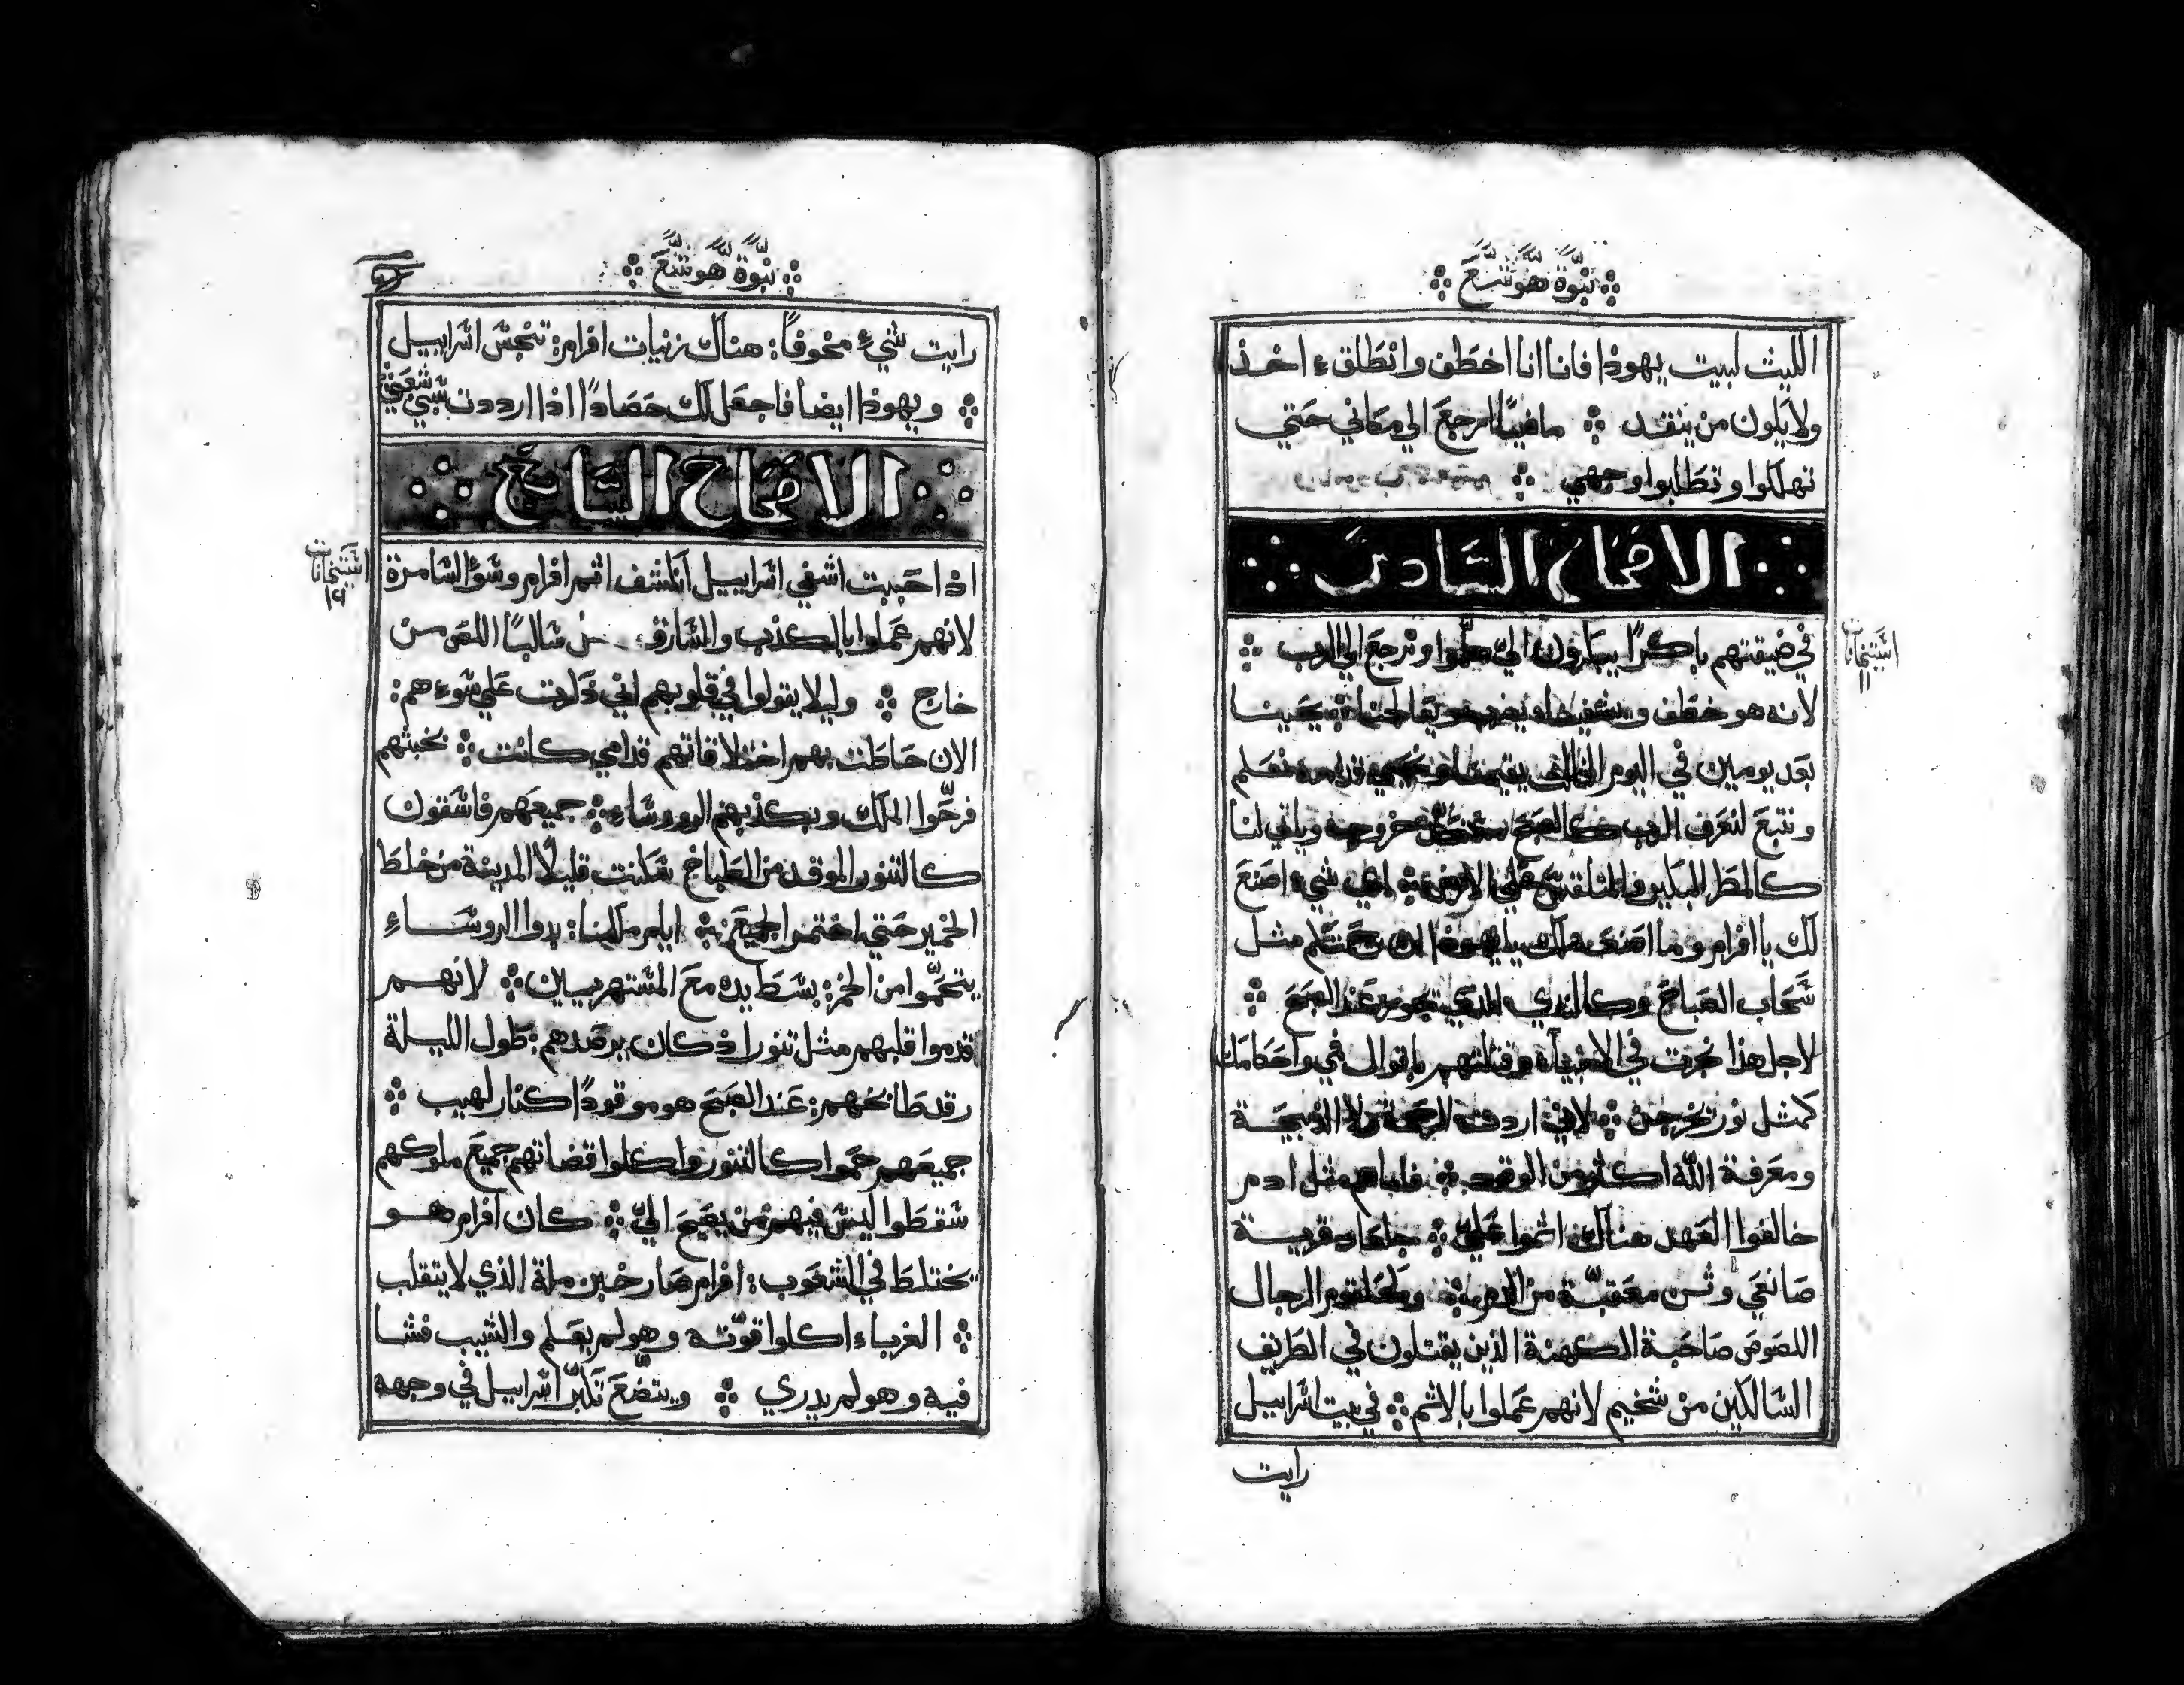 نبوة هوشع
الليث لبيت يهوذا فانا انا اخطف وانطلق ء اخذ
ولا يكون من ينقد ماضيًا ارجع الي مكاني حتي
تهلكوا وتطلبوا وجهي
الاصحاح السادس
في ضيقتهم باكرًا يبكرون اليّ هلموا ونرجع الي الرب
لانه هو خطف ويشفينا
بعد يومين في اليوم الثالث قدامه نعلم
ونتبع لنعرف الرب كالصبح خروجه وياتي لنا
كالمطر البكير علي الارض اي شيء اصنع
لك يا افرام وما اصنع لك يا يهوذا مثل
سحاب الصباح وكالندي الذي عند الصبح
لاجل هذا نجرت في الانبياء وقتلتهم باقوال فمي واحكامك
كمثل نور تخرجن لاني اردت الرحمة ولا الذبيحة
ومعرفة الله اكثر من الوقود فاما هم مثل ادم
خالفوا العهد هناك اثموا عليّ جلعاد قرية
صانعي وثن معقبة من الدم الرجال
اللصوص صاحبة الكهنة الذين يقتلون في الطريق
السالكين من شخيم لانهم عملوا بالاثم في بيت اسراييل
رايت
استيخانات
١١
نبوة هوشع
رايت شيء مخوفًا: هناك زنيات افرام: تنجس اسراييل
ويهوذا ايضا فاجعل لك حصادًا اذا ارددت سبي شعبي
الاصحاح السابع
اذ احببت اشفي اسراييل انكشف اثم افرام وسؤ السامرة
لانهم عملوا بالكذب والسارق سالبًا اللص من
خارج وليلا يقولوا في قلوبهم اني ذكرت علي سوءهم:
الان حاطت بهم اختلاقاتهم قدامي كانت بخبثهم
فرحّوا الملك وبكذبهم الرووساء جميعهم فاسقون
كالتنور الموقد من الطباخ سكنت قليلًا المدينة من خلط
الخمير حتي اختمر الجميع ايام ملكنا: بدوا الروساء
يتحمّوا من الخمر: بسط يده مع المستهزيين لانهم
قدموا قلبهم مثل تنور اذ كان يرصدهم: طول الليلة
رقد طابخهم: عند الصبح هو موقودًا كنار لهيب
جميعهم حموا كالتنور واكلوا قضاتهم جميع ملوكهم
سقطوا ليس فيهم من يصيح اليّ كان افرام هو
يختلط في الشعوب: افرام صار خبز ملة الذي لا يتقلب
الغرباء اكلوا قوّته وهو لم يعلم والشيب فشا
فيه وهو لم يدري ويتضّع تكبّر اسراييل في وجهه
استيخانات
١٢